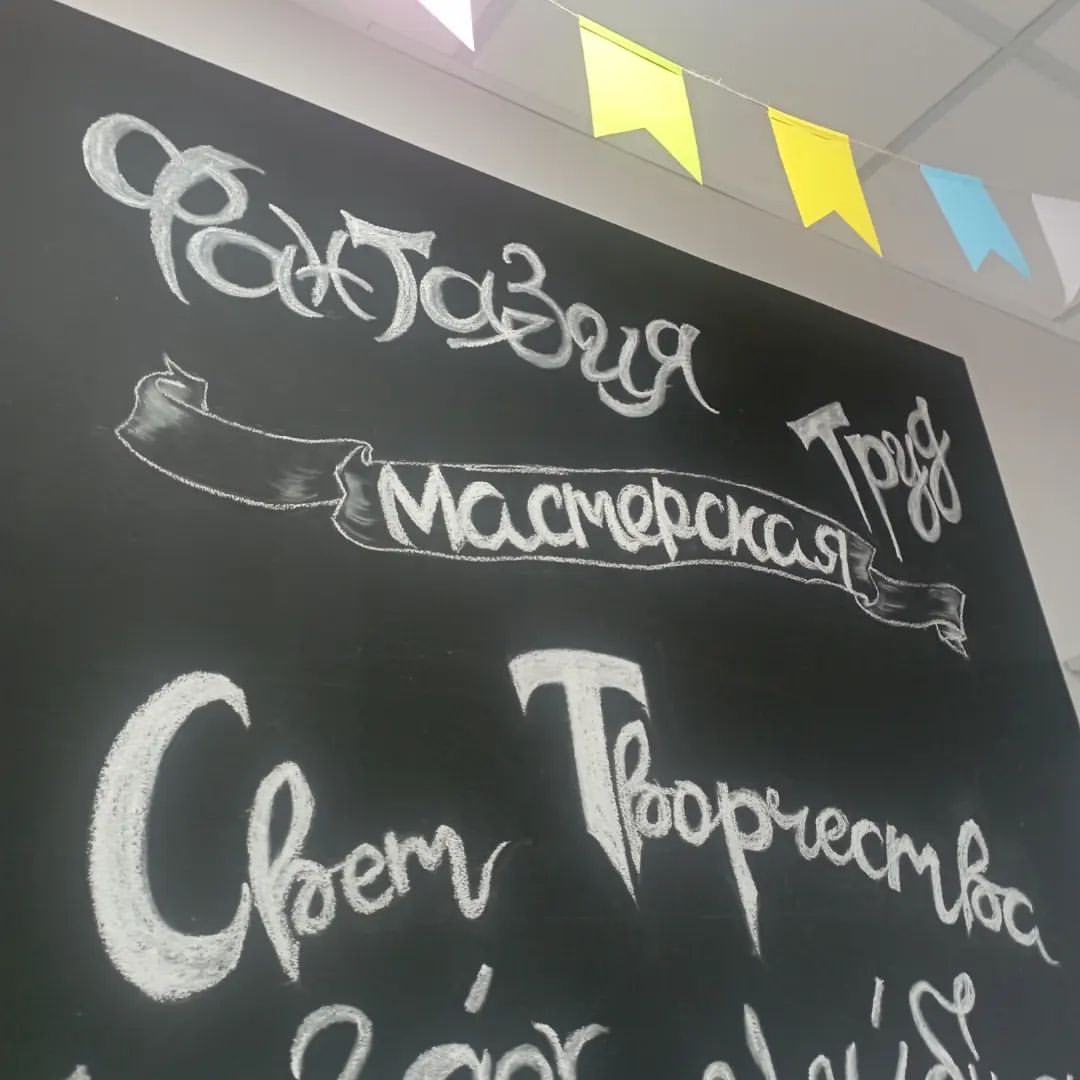 Фантазия
Труд
Мастерская
Свет Творчества